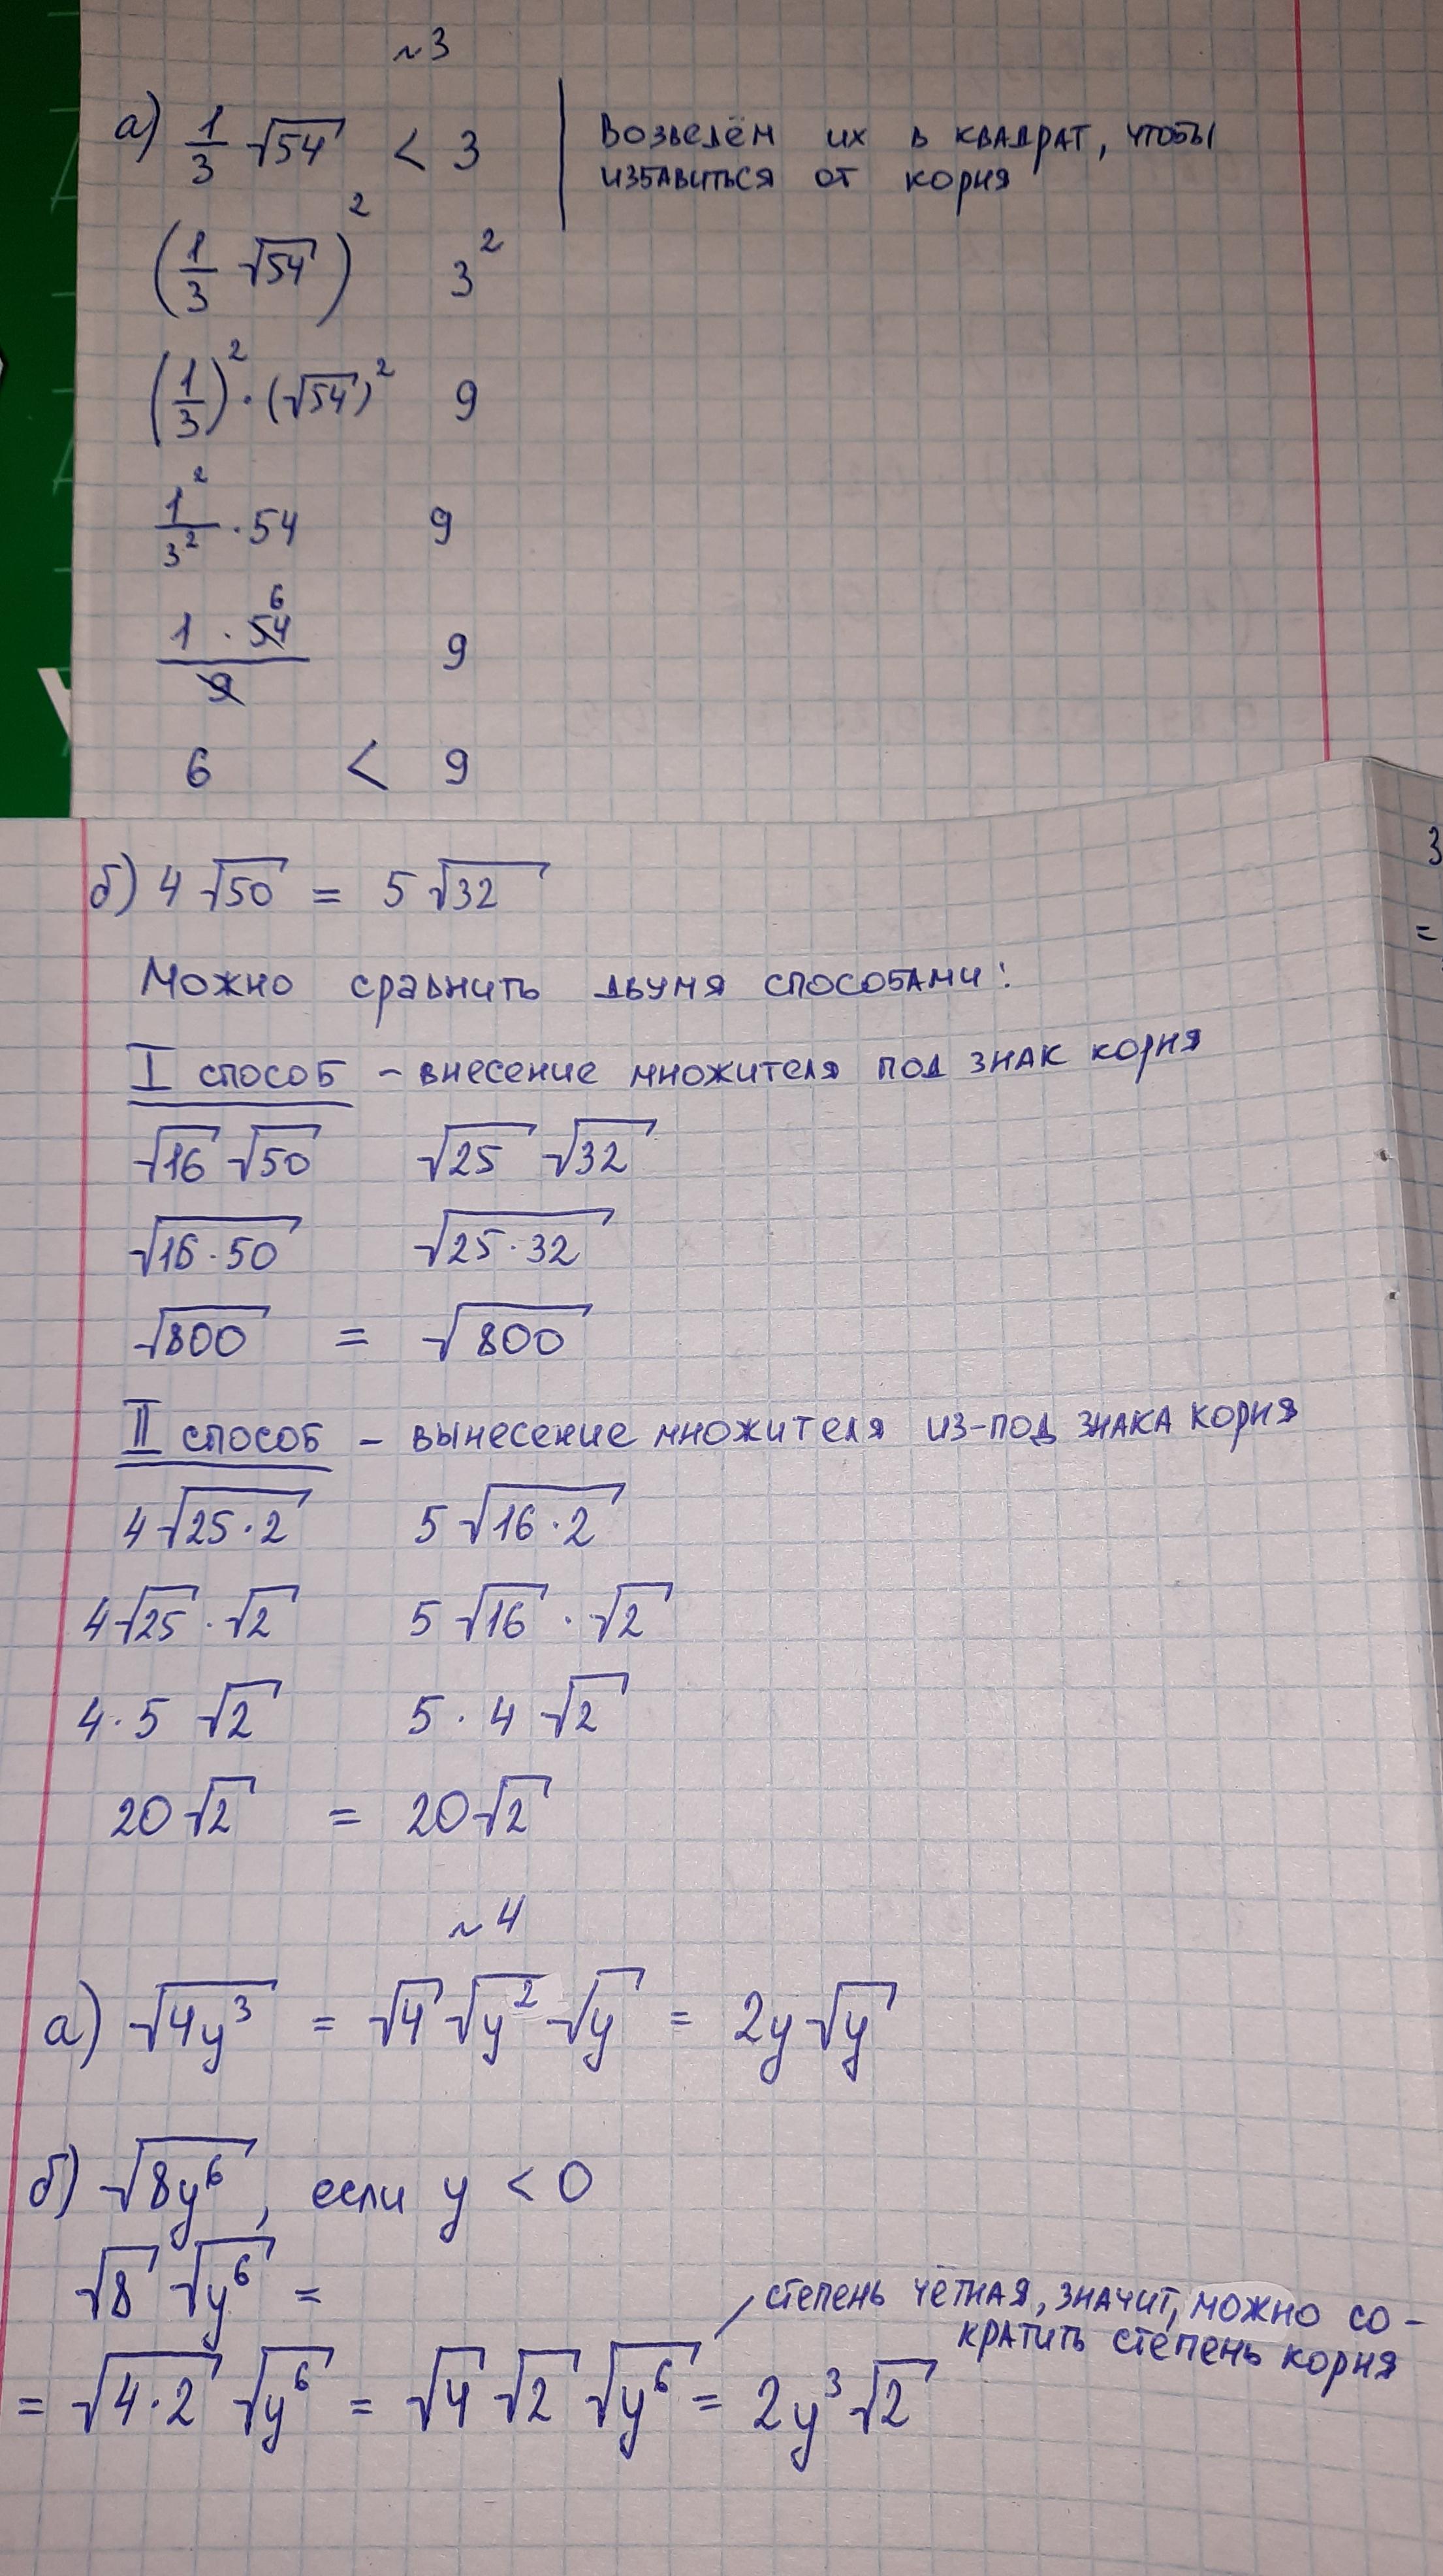 ~3
а) 1/3 √54 < 3 | Возведём их в квадрат, чтобы
избавиться от корня
(1/3 √54)² 3²
(1/3)² · (√54)² 9
1²/3² · 54 9
6
1 · 54/9 9
6 < 9
3
=
б) 4√50 = 5√32
Можно сравнить двумя способами:
I способ – внесение множителя под знак корня
√16 √50 √25 √32
√16·50 √25·32
√800 = √800
II способ – вынесение множителя из-под знака корня
4√25·2 5√16·2
4√25 · √2 5√16 · √2
4·5 √2 5·4 √2
20√2 = 20√2
~4
а) √4y³ = √4 √y² √y = 2y√y
б) √8y⁶, если y < 0
√8 √y⁶ =
степень чётная, значит, можно со-
кратить степень корня
= √4·2 √y⁶ = √4 √2 √y⁶ = 2y³√2